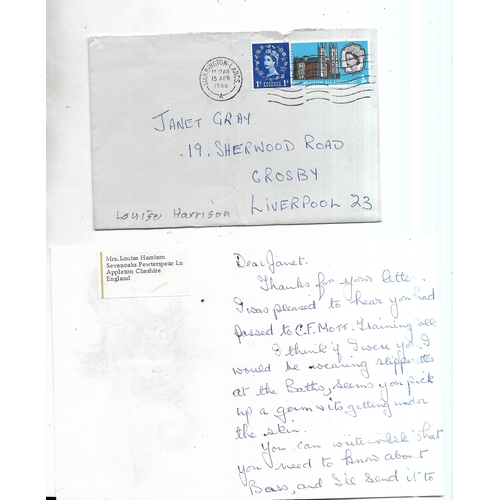 WARRINGTON LANCS
15 APR
1966
A
JANET GRAY
19, SHERWOOD ROAD
CROSBY
LIVERPOOL 23
Louise Harrison
Mrs. Louise Harrison
Sevenoaks Pewterspear Ln
Appleton Cheshire
England
Dear Janet.
Thanks for your letter.
I was pleased to hear you had
passed to C.F. MOTT. Training
I think if I were you I
would be wearing slipperettes
at the Baths, seems you pick
up a germ & its getting under
the skin.
You can write what
you need to know about
and I'll send it to